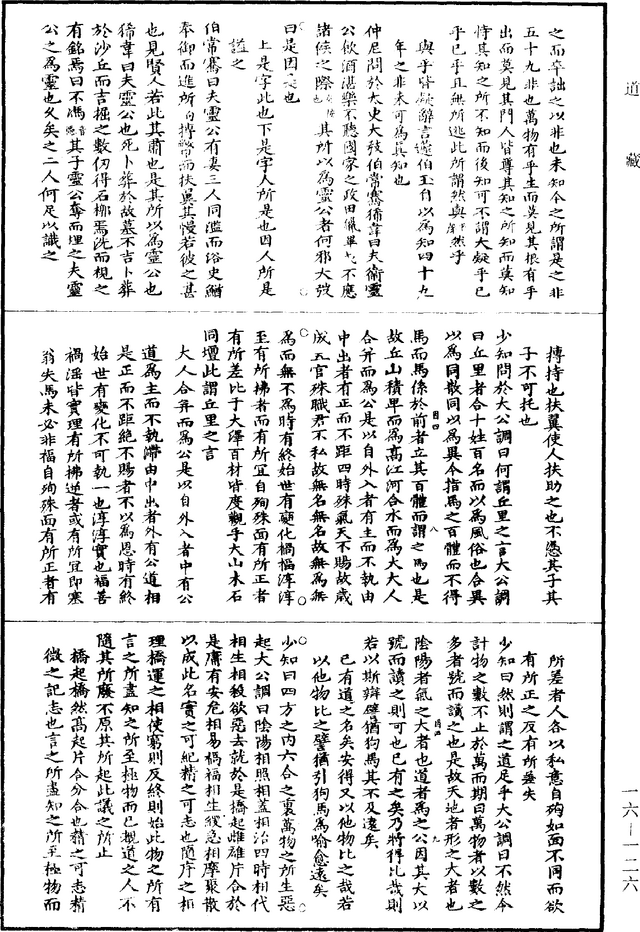 道藏
之而卒詘之以非也未知今之所謂是之非
五十九非也萬物有乎生而莫見其根有乎
出而莫見其門人皆尊其知之所知而莫知
恃其知之所不知而後知可不謂大疑乎已
乎已乎且無所逃此所謂然與然乎
與乎皆疑辭言蘧伯玉自以為知四十九
年之非未可為真知也
仲尼問於大史大弢伯常騫狶韋曰夫衛靈
公飲酒湛樂不聽國家之政田獵畢弋不應
諸侯之際其所以為靈公者何邪大弢
曰是因是也
上是字此也下是字人所是也因人所是
謚之
伯常騫曰夫靈公有妻三人同濫而浴史鰌
奉御而進所搏幣而扶翼其慢若彼之甚
也見賢人若此其肅也是其所以為靈公也
狶韋曰夫靈公也死卜葬於故墓不吉卜葬
於沙丘而吉掘之數仞得石槨焉洗而視之
有銘焉曰不馮其子靈公奪而埋之夫靈
公之為靈也久矣之二人何足以識之
搏持也扶翼使人扶助之也不憑其子其
子不可托也
少知問於大公調曰何謂丘里之言大公調
曰丘里者合十姓百名而以為風俗也合異
以為同散同以為異今指馬之百體而不得
馬而馬係於前者立其百體而謂之馬也是
故丘山積卑而為高江河合水而為大大人
合并而為公是以自外入者有主而不執由
中出者有正而不距四時殊氣天不賜故歲
成五官殊職君不私故無名無名故無為無
為而無不為時有終始世有變化禍福淳淳
至有所拂者而有所宜自殉殊面有所正者
有所差比于大澤百材皆度觀乎大山木石
同壇此謂丘里之言
大人合并而為公是以自外入者中有公
道為主而不執滯由中出者外有公道相
是正而不距絶不賜者不以為恩時有終
始世有變化不可執一也淳淳實也福善
禍淫皆實理有所拂逆者或有所宜即塞
翁失馬未必非福自殉殊面有所正者有
所差者人各以私意自殉如面不同而欲
有所正之反有所差失
少知曰然則謂之道足乎大公調曰不然今
計物之數不止於萬而期曰萬物者以數之
多者號而讀之也是故天地者形之大者也
陰陽者氣之大者也道者為之公因其大以
號而讀之則可也已有之矣乃將得比哉則
若以斯辯譬猶狗馬其不及遠矣
已有道之名矣安得又以他物比之哉若
以他物比之譬猶引狗馬為喻愈遠矣
少知曰四方之內六合之裏萬物之所生惡
起大公調曰陰陽相照相蓋相治四時相代
相生相殺欲惡去就於是橋起雌雄片合於
是庸有安危相易禍福相生緩急相摩聚散
以成此名實之可紀精之可志也隨序之相
理橋運之相使窮則反終則始此物之所有
言之所盡知之所至極物而已覩道之人不
隨其所廢不原其所起此議之所止
橋起橋然高起片合分合也精之可志精
微之記志也言之所盡知之所至極物而
一六-一二六